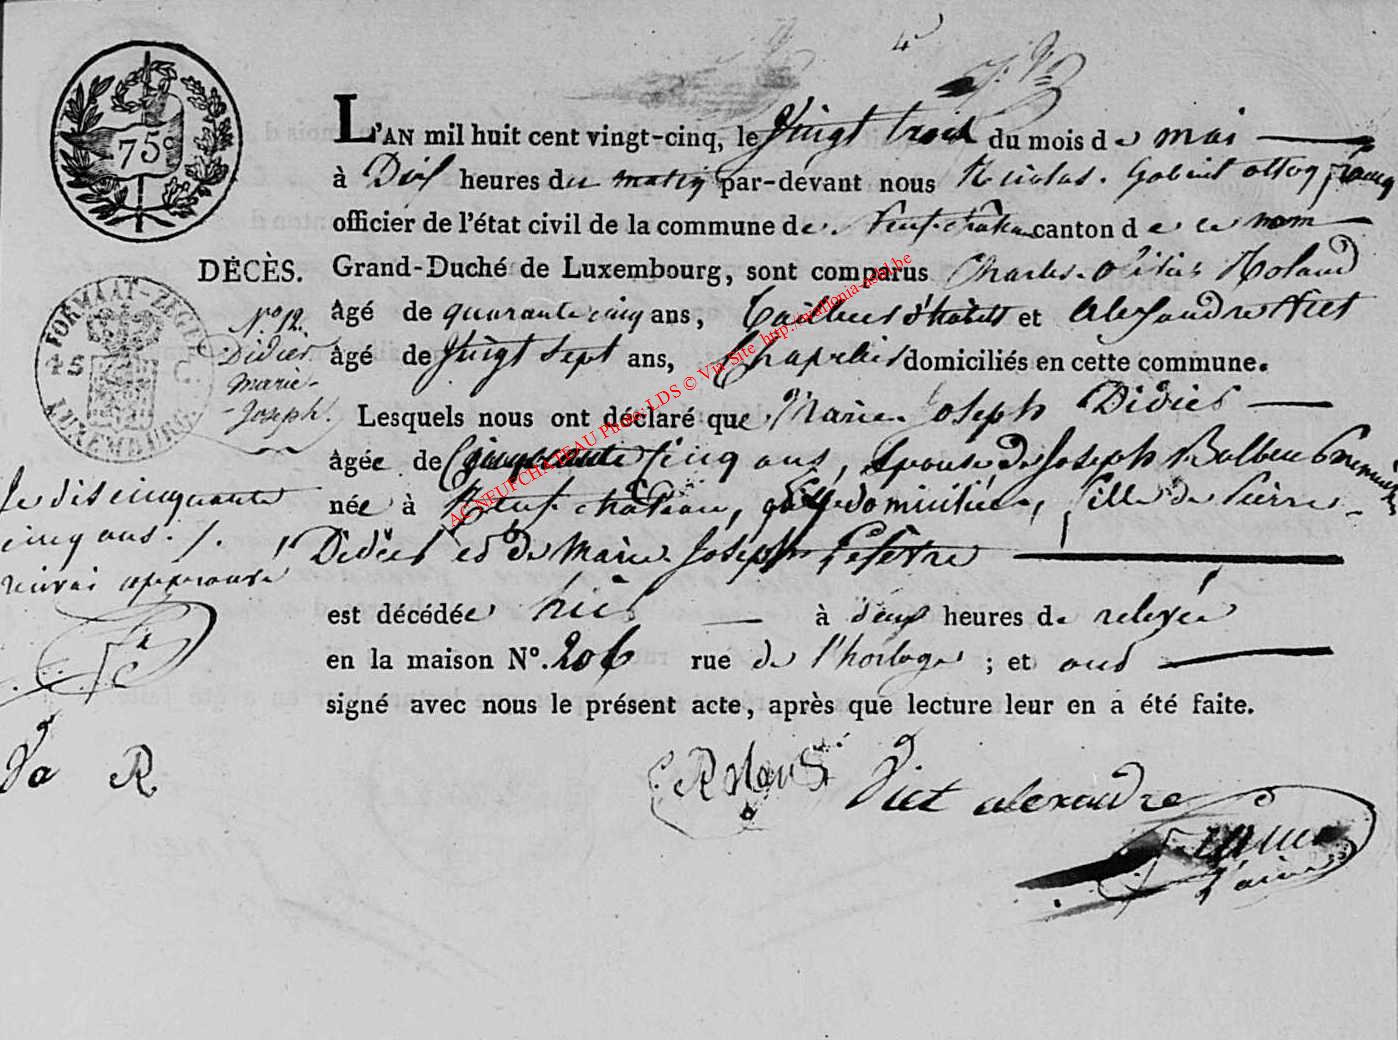 75 c
L'AN mil huit cent vingt-cinq, le Vingt trois du mois de mai
à Dix heures du matin par-devant nous Nicolas
officier de l'état civil de la commune de Neufchâteau canton de ce nom
DÉCÈS.
Grand-Duché de Luxembourg, sont comparus Charles Roland
FORMAAT-ZEGEL
45 C.
LUXEMBURG.
N.o 12.
Didier
marie-
Joseph.
âgé de quarante cinq ans, Tailleur d'habits et alexandre Viet
âgé de Vingt Sept ans, Chapelier domiciliés en cette commune.
Lesquels nous ont déclaré que Marie Joseph Didier
âgée de Cinquante Cinq ans, Epouse de Joseph
née à Neufchâteau, y domiciliée, fille de Pierre
Didier et de Marie Joseph Lefevre
Je dis cinquante
cinq ans. /.
renvoi approuvé
est décédée hier à deux heures de relevée
en la maison N°. 206 rue de l'horloge ; et ont
signé avec nous le présent acte, après que lecture leur en a été faite.
C Roland
Viet alexandre
AC NEUFCHATEAU Photo LDS © Via Site http://wallonia-aebl.be